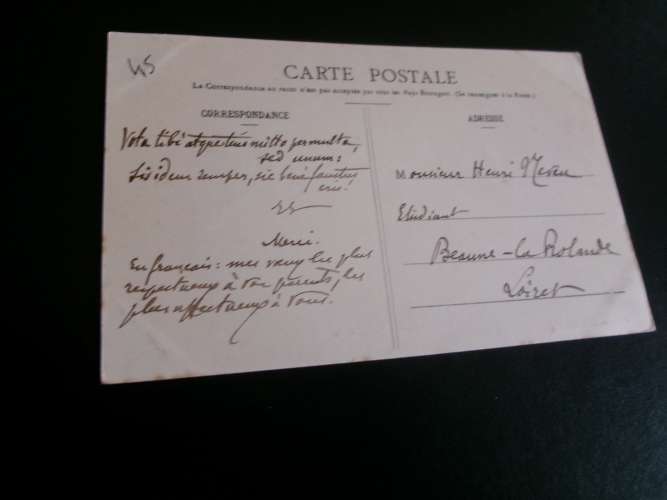 45
CARTE POSTALE
La Correspondance au recto n'est pas acceptée par tous les Pays Étrangers. (Se renseigner à la Poste.)
CORRESPONDANCE
Vota tibi atque tuis mitto permulta,
sed unum:
Sis idem semper, sic bene faustus
eris!
Merci.
En français: mes vœux les plus
respectueux à vos parents, les
plus affectueux à vous.
ADRESSE
Monsieur Henri
Etudiant
Beaune-la Rolande
Loiret